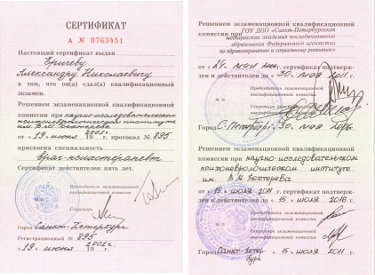 СЕРТИФИКАТ
А № 0763451
Настоящий сертификат выдан
Еричеву
Александру Николаевичу
в том, что он(а) сдал(а) квалификационный
экзамен.
Решением экзаменационной квалификационной
комиссии при научно-исследовательском
психоневрологическом институте
им. В.М. Бехтерева
от « 19 » июня 2001 г. протокол № 395
присвоена специальность
врач-психотерапевт
Сертификат действителен пять лет.
Председатель экзаменационной
квалификационной комиссии
Секретарь
Город Санкт-Петербург
Регистрационный № 395
19 июня 2001 г.
Решением экзаменационной квалификационной
комиссии при ГОУ ДПО «Санкт-Петербургская
медицинская академия последипломного
образования Федерального агентства
по здравоохранению и социальному развитию»
от «
сертификат подтвержден
и действителен до « 30 » мая 2011 г.
Председатель экзаменационной
квалификационной комиссии
Секретарь
Город С.Петербург
Решением экзаменационной квалификационной
комиссии при научно-исследовательском
психоневрологическом институте
им. В.М. Бехтерева
от « 15 » июля 2011 г. сертификат подтвержден
и действителен до « 15 » июля 2016 г.
Председатель экзаменационной
квалификационной комиссии
Секретарь
Город Санкт-Петербург « 15 » июля 2011 г.